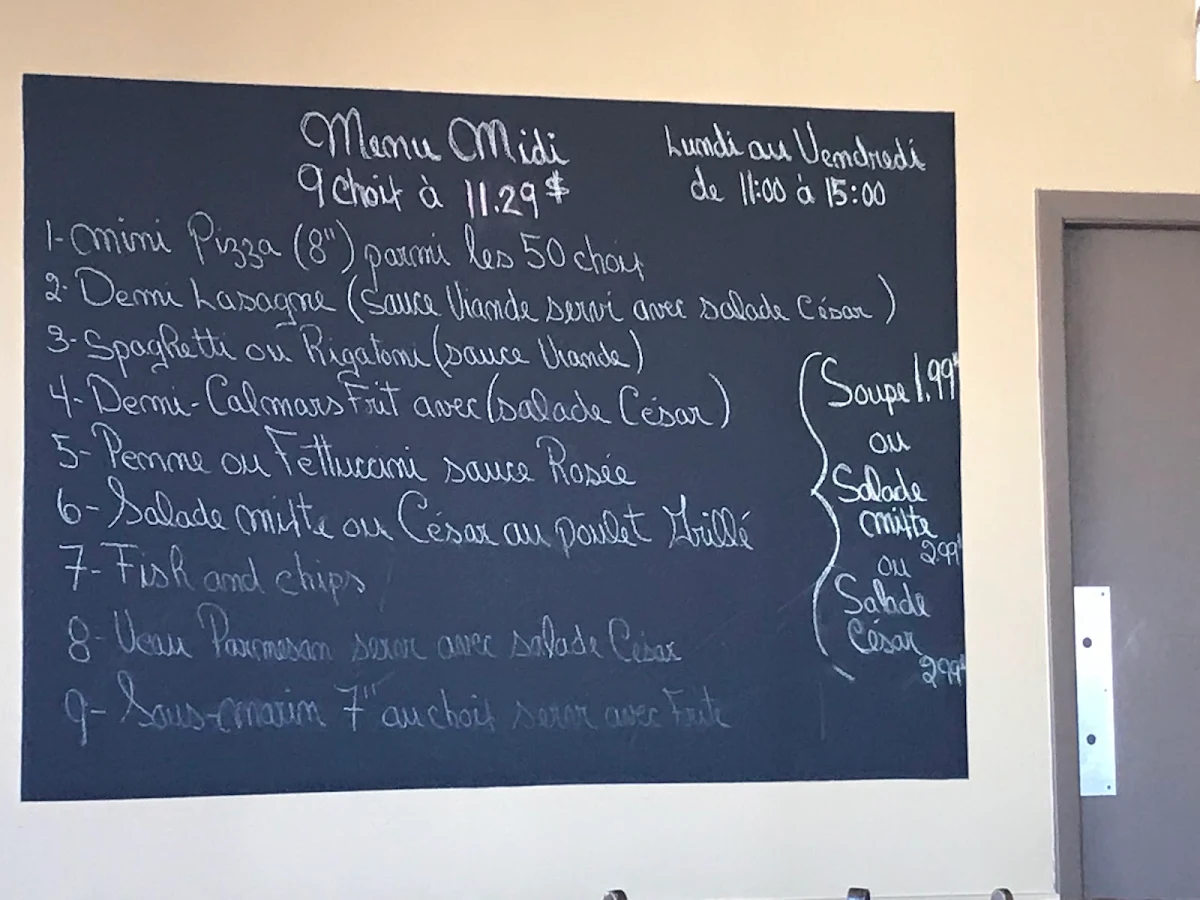 Menu Midi
9 choix à 11.29$
Lundi au Vendredi
de 11:00 à 15:00
1- mini Pizza (8") parmi les 50 choix
2- Demi Lasagne (sauce Viande servi avec salade César)
3- Spaghetti ou Rigatoni (sauce Viande)
4- Demi-Calmars Frit avec (salade César)
5- Penne ou Fettuccini sauce Rosée
6- Salade mixte ou César au poulet Grillé
7- Fish and chips
8- Veau Parmesan servi avec salade César
9- Sous-marin 7" au choix servi avec Frite
Soupe 1.99$
ou
Salade
mixte
2.99$
ou
Salade
César
2.99$